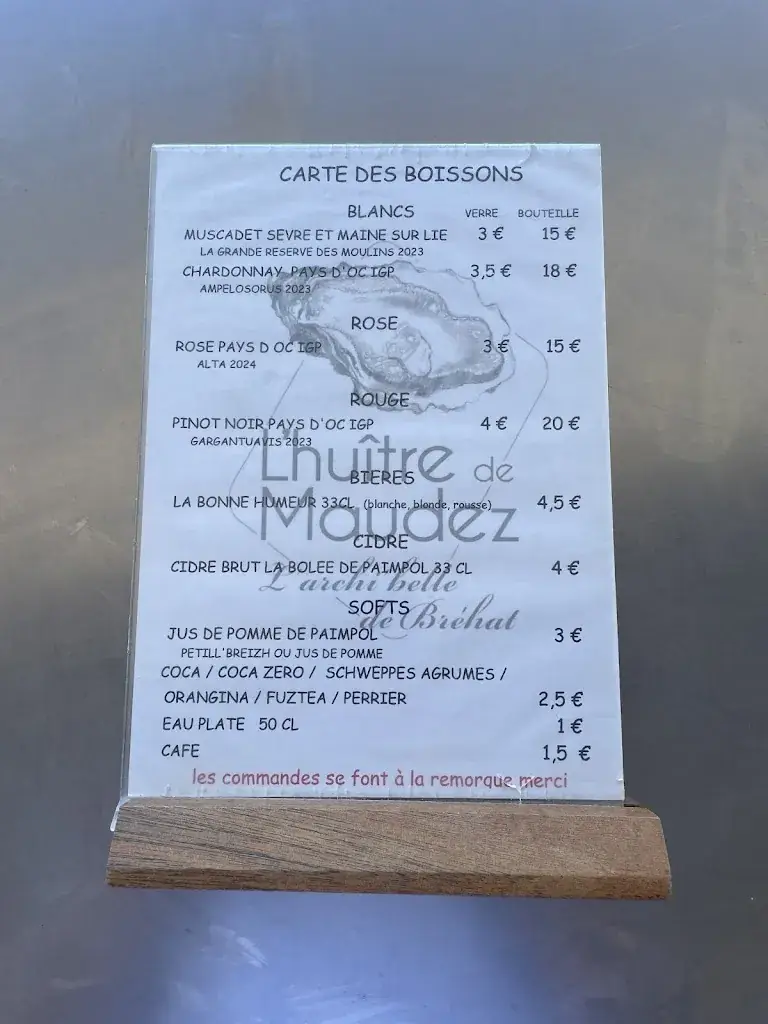 CARTE DES BOISSONS
BLANCS VERRE BOUTEILLE
MUSCADET SEVRE ET MAINE SUR LIE 3 € 15 €
LA GRANDE RESERVE DES MOULINS 2023
CHARDONNAY PAYS D'OC IGP 3,5 € 18 €
AMPELOSORUS 2023
ROSE
ROSE PAYS D OC IGP 3 € 15 €
ALTA 2024
ROUGE
PINOT NOIR PAYS D'OC IGP 4 € 20 €
GARGANTUAVIS 2023
L'huître de
BIERES
LA BONNE HUMEUR 33CL (blanche, blonde, rousse) 4,5 €
Maudez
CIDRE
CIDRE BRUT LA BOLEE DE PAIMPOL 33 CL 4 €
L'archi belle
SOFTS
de Bréhat
JUS DE POMME DE PAIMPOL 3 €
PETILL'BREIZH OU JUS DE POMME
COCA / COCA ZERO / SCHWEPPES AGRUMES /
ORANGINA / FUZTEA / PERRIER 2,5 €
EAU PLATE 50 CL 1 €
CAFE 1,5 €
les commandes se font à la remorque merci